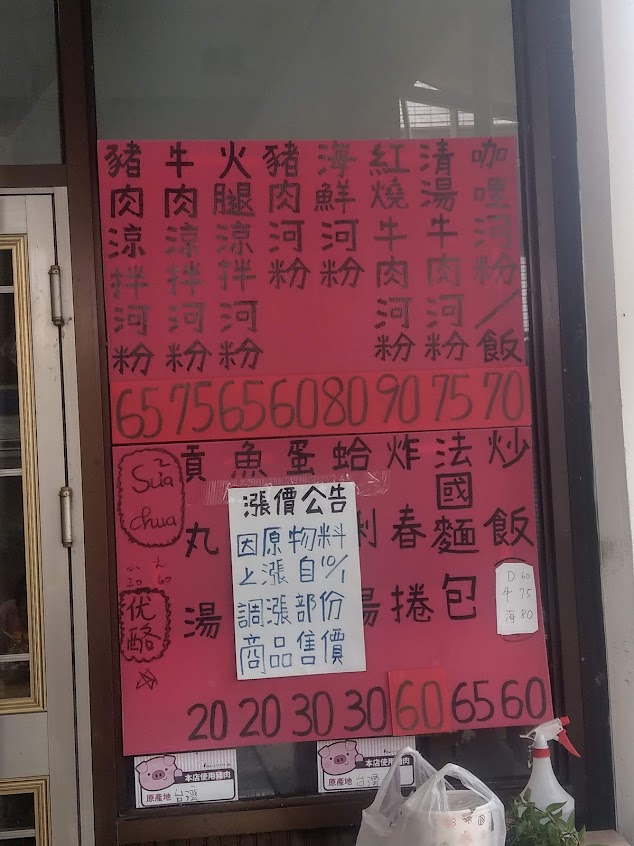 咖哩河粉/飯
清湯牛肉河粉
紅燒牛肉河粉
海鮮河粉
豬肉河粉
火腿涼拌河粉
牛肉涼拌河粉
豬肉涼拌河粉
65 75 65 60 80 90 75 70
炒飯
法國麵包
炸春捲
蛤
蛋
魚
貢丸湯
Sữa
chua
小 大
20 60
优酪
漲價公告
因原物料
上漲自10/1
調漲部份
商品售價
D 60
牛 75
海 80
20 20 30 30 60 65 60
本店使用豬肉
原產地
本店使用豬肉
原產地